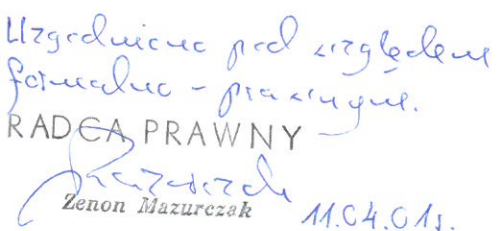 Uzgodniono pod względem
formalno - prawnym.
RADCA PRAWNY
Zenon Mazurczak
11.04.01r.